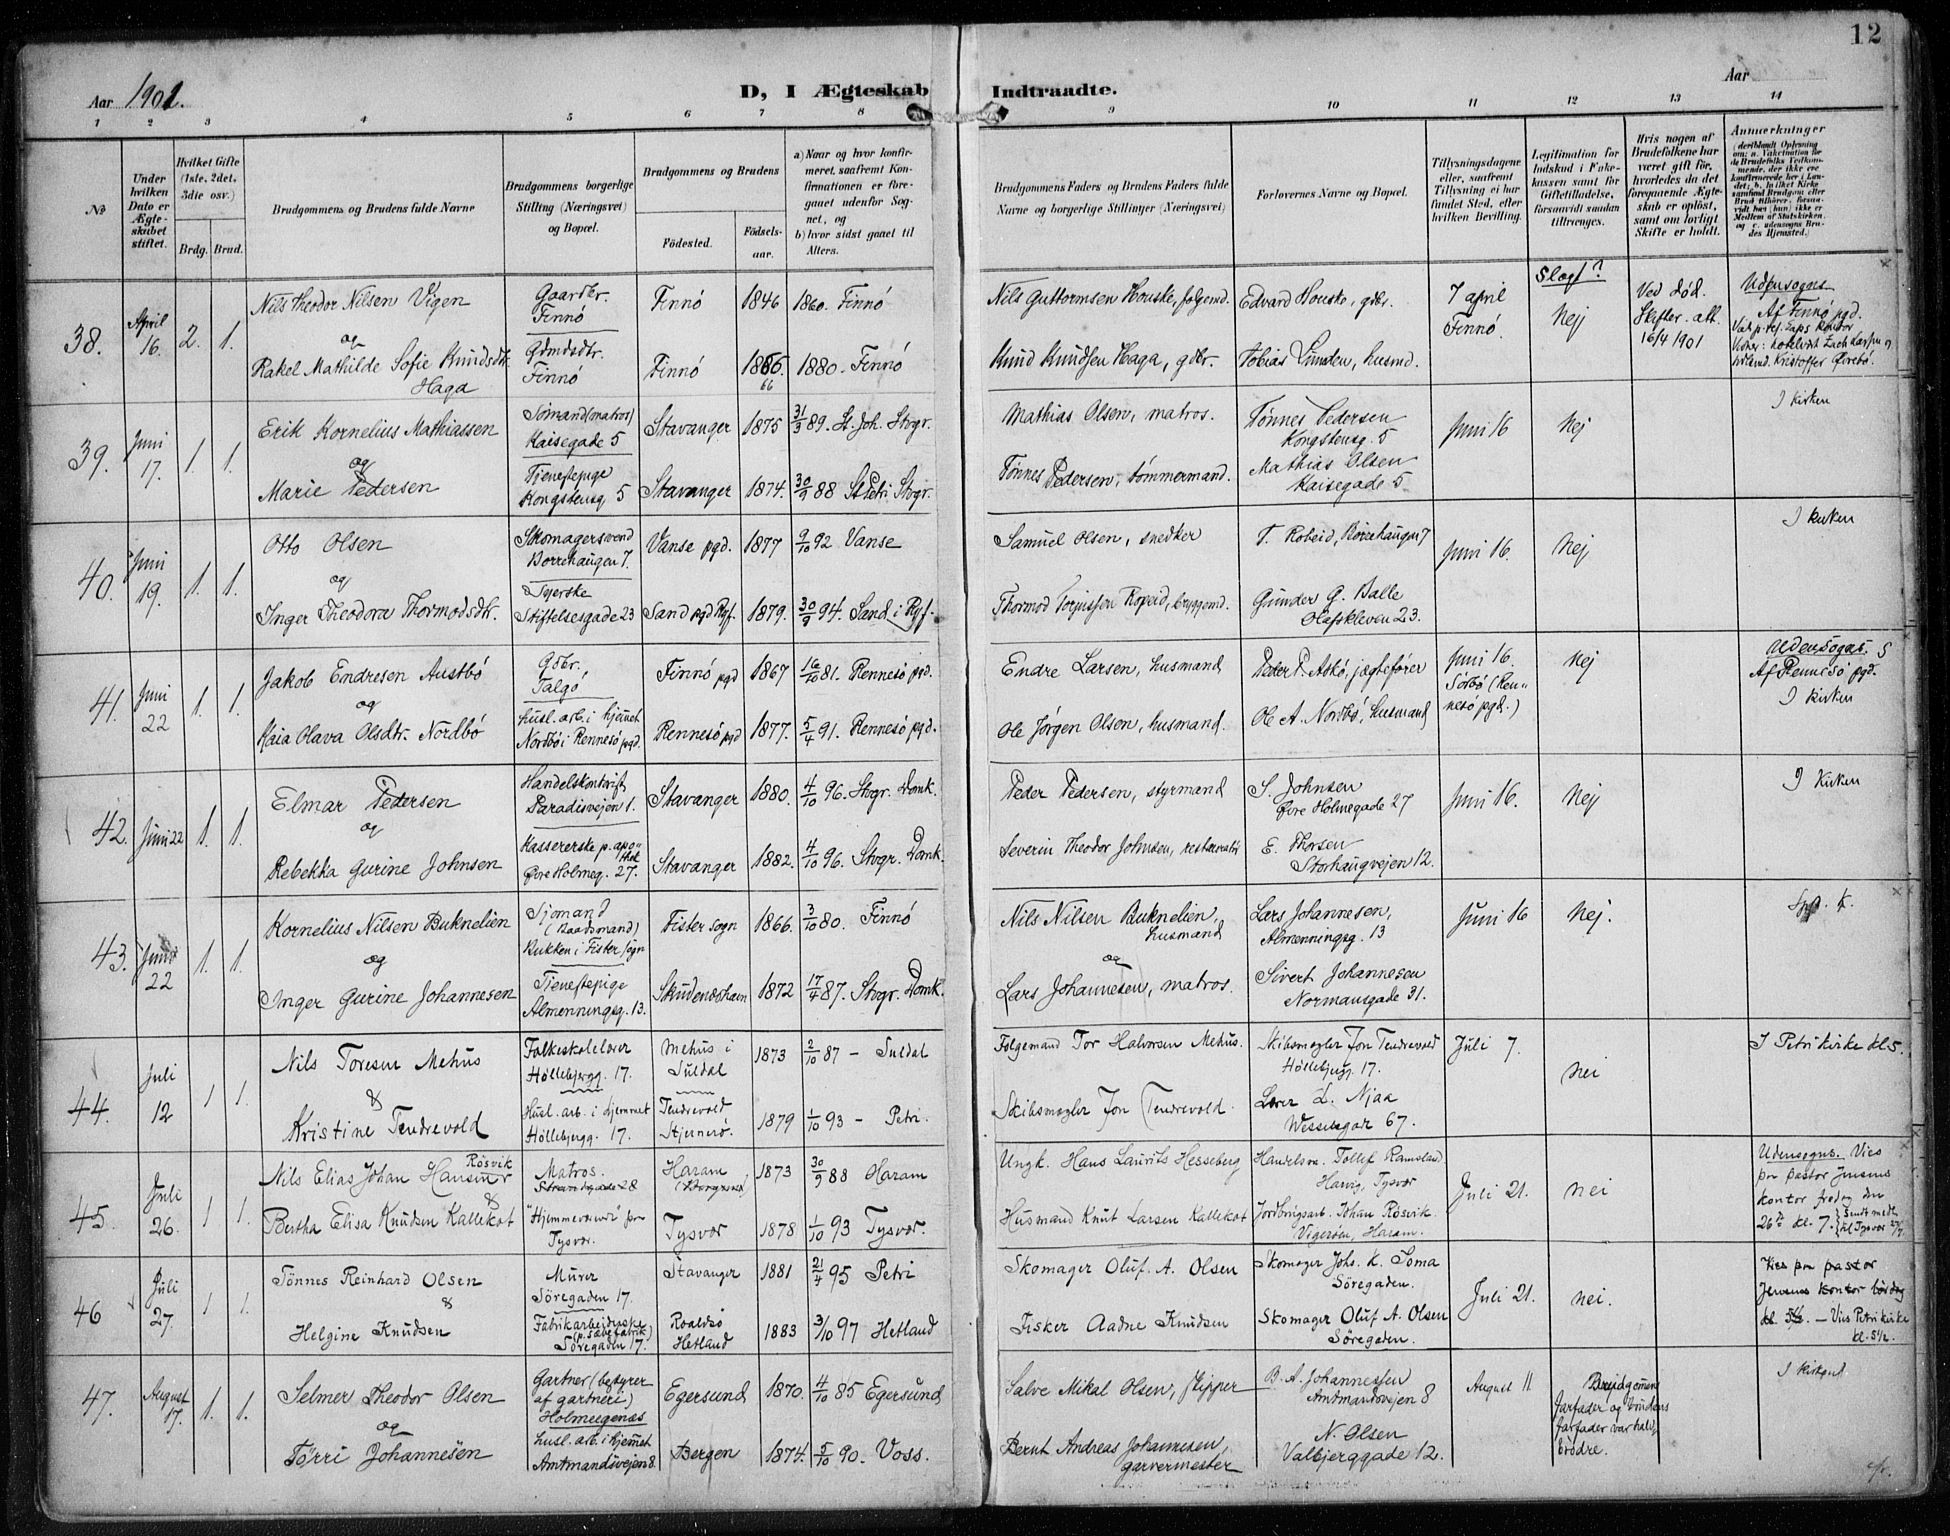 12
Aar 1901.
D, I Ægteskab Indtraadte.
Aar
1 2 3 4 5 6 7 8 9 10 11 12 13 14
No
Under hvilken Dato er Ægteskabet stiftet.
Hvilket Gifte (1ste, 2det, 3die osv.)
Brdg. Brud.
Brudgommens og Brudens fulde Navne
Brudgommens borgerlige Stilling (Næringsvei) og Bopæl.
Brudgommens og Brudens
Fødested. Fødselsaar.
a) Naar og hvor konfirmeret, saafremt Konfirmationen er foregaaet udenfor Sognet, og
b) hvor sidst gaaet til Alters.
Brudgommens Faders og Brudens Faders fulde Navne og borgerlige Stillinger (Næringsvei)
Forlovernes Navne og Bopæl.
Tillysningsdagene eller, saafremt Tillysning ei har fundet Sted, efter hvilken Bevilling.
Legitimation for Indskud i Enkekassen samt for Giftetilladelse, forsaavidt saadan tiltrænges.
Hvis nogen af Brudefolkene har været gift før, hvorledes da det foregaaende Ægteskab er opløst, samt om lovligt Skifte er holdt.
Anmærkninger
38. April 16. 2. 1.
Nils Theodor Nilsen Vigen
og
Rakel Mathilde Sofie Knudsdtr. Haga
Gaardbr. Finnö
Gdmdsdtr. Finnö
Finnö 1846 1860. Finnö
Finnö 1866. 66 1880. Finnö
Nils Guttormsen Houske, folgemd.
Knud Knudsen Haga, gdbr.
Edvard Houske, gdbr.
Tobias Lunden, husmd.
7 april Finnö.
Slægt? Nej
Ved død. Skifter. att. 16/4 1901
Udensogns
Af Finnö pgd.
39. Juni 17. 1. 1.
Erik Kornelius Mathiassen
og
Marie Pedersen
Sömand (matros) Kaisegade 5
Tjenestepige Kongstensg 5
Stavanger 1875 31/3 89. St. Joh. Stvgr.
Stavanger 1874. 30/9 88 St Petri Stvgr.
Mathias Olsen, matros.
Tönnes Pedersen, tömmermand.
Tönnes Pedersen Kongstensg. 5
Mathias Olsen Kaisegade 5
Juni 16 Nej
I kirken
40. Juni 19. 1. 1.
Otto Olsen
og
Inger Theodora Thormodsdtr.
Skomagersvend Borrehaugen 7.
Syerske Stiftelsesgade 23
Vanse pgd. 1877 9/10 92 Vanse
Sand pgd Ryf. 1879. 30/9 94. Sand i Ryf.
Samuel Olsen, snedker
Thormod Torjussen Ropeid, bryggemd.
T. Robeid, Borrehaugen 7
Gunder G. Balle Olafskleven 23.
Juni 16. Nej
I kirken
41. Juni 22 1. 1.
Jakob Endresen Austbö
og
Kaia Olava Olsdtr. Nordbö
Gdbr. Talgö
husl. arb. i hjemet Nordbö i Rennesö pgd.
Finnö pgd 1867 16/10 81. Rennesö pgd.
Rennesö pgd 1877. 5/4 91. Rennesö pgd.
Endre Larsen, husmand
Ole Jörgen Olsen, husmand.
Peder P. Askö, jægtefører
Ole A. Nordbö, husmand
Juni 16. Sörbö (Rennesö pgd.) Nej
Udensogns. Af Rennesö pgd. I kirken
42. Juni 22 1. 1.
Elmar Pedersen
og
Rebekka Gurine Johnsen
Handelskontorist Paradisvejen 1.
Kassererske p. apothek Øvre Holmeg. 27.
Stavanger 1880. 4/10 96. Stvgr. Domk.
Stavanger 1882. 4/10 96. Stvgr. Domk.
Peder Pedersen, styrmand
Severin Theodor Johnsen, restauratör
S. Johnsen Øvre Holmegade 27
E. Thorsen Storhaugvejen 12.
Juni 16. Nej
I kirken
43. Juni 22 1. 1.
Kornelius Nilsen Buknelien
og
Inger Gurine Johannesen
Sjömand (Baadsmand) Bukken i Fister sogn
Tjenestepige Almenningsg. 13.
Fister sogn 1866. 3/10 80. Finnö
Skudeneshavn 1872 17/4 87. Stvgr. Domk.
Nils Nilsen Buknelien, husmand
og
Lars Johannesen, matros.
Lars Johannesen, Almenningsg. 13
Sivert Johannesen Normansgade 31.
Juni 16 Nej.
44. Juli 12 1 1.
Nils Toresen Mehus
&
Kristine Tendrevold
Folkeskolelærer Höllebjergg. 17.
Husl. arb. i hjemmet Höllebjergg. 17.
Mehus i Suldal 1873 2/10 87 – Suldal
Tendrevold Stjernerö. 1879 1/10 93 – Petri.
Følgemand Tor Halvorsen Mehus.
Skibsmægler Jon Tendrevold.
Skibsmægler Jon Tendrevold Höllebjergg. 17.
Lærer L. Njaa Wesselsgade 67.
Juli 7. nei
I Petri kirke kl 5.
45. Juli 26. 1 1.
Nils Elias Johan Hansen Røsvik
&
Bertha Elisa Knudsen Kallekot
Matros. Strandgade 28
"Hjemmeværende" pr Tysvær.
Haram 1873 30/9 88 Haram
Tysvær 1878 1/10 93 Tysvær.
Ungk. Hans Laurits Hesseberg
Husmand Knut Larsen Kallekot
Handelsm. Tollef Ramsland Hervig, Tysvær
Jordbrugsarb. Johan Røsvik. Vigerøen, Haram.
Juli 21. nei
Udensogns. Vies paa pastor Jensens kontor fredag den 26de kl. 7.
46 Juli 27. 1 1.
Tönnes Reinhard Olsen
&
Helgine Knudsen
Murer Söregaden 17.
Fabrikarbejderske (p. sæbefabrik) Söregaden 17.
Stavanger 1881 21/4 95 Petri
Roaldsö Hetland 1883 3/10 97 Hetland
Skomager Oluf. A. Olsen
Fisker Aadne Knudsen
Skomager Johs. K. Soma Söregaden.
Skomager Oluf A. Olsen Söregaden.
Juli 21. nei.
Vies paa pastor Jensens kontor lördag kl. 5½. – Vies Petri kirke kl. 5½.
47. August 17. 1. 1.
Selmer Theodor Olsen
og
Törri Johannesen
Gartner (bestyrer af gartneri) Holmeegenæs
husl. arb. i hjemet Amtmandsvejen 8.
Egersund 1870. 4/10 85 Egersund
Bergen 1874. 5/10 90. Voss.
Salve Mikal Olsen, skipper
Bernt Andreas Johannesen, garvermester
B. A. Johannessen Amtmandsvejen 8
N. Olsen Valbjerggade 12.
August 11
Brudgommens farfader og brudens farfader var halvbrödre.
I kirken